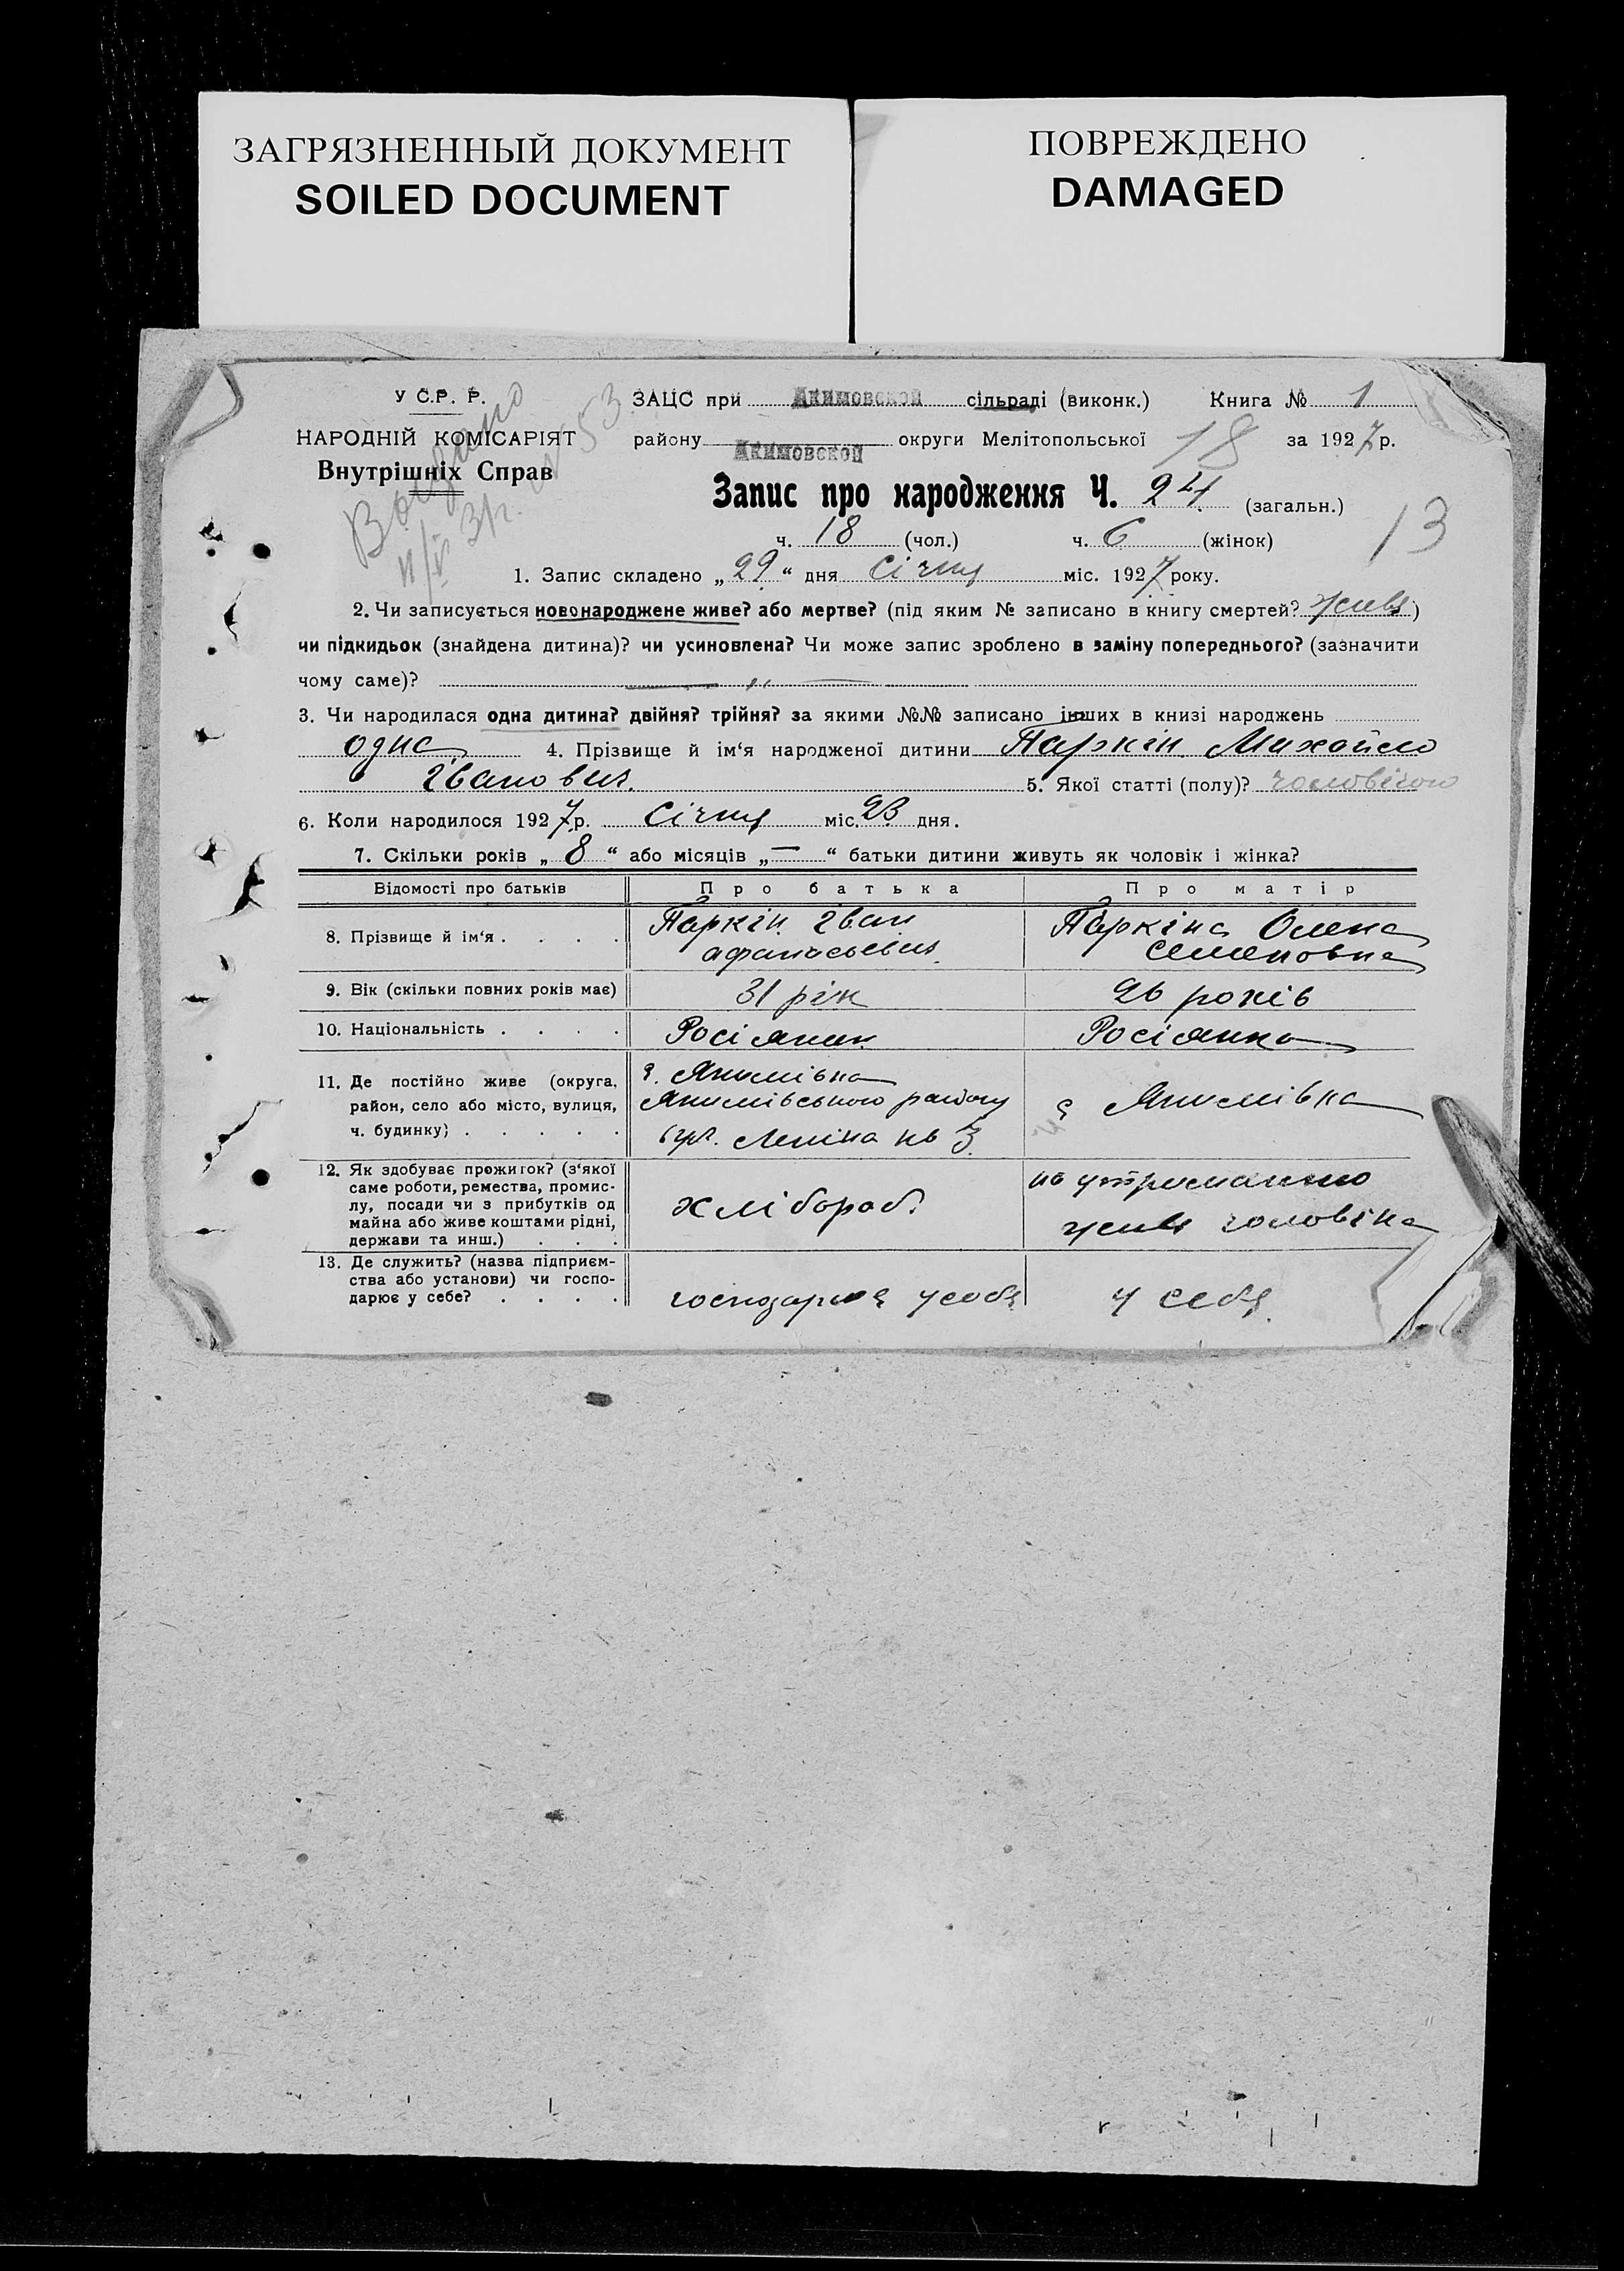 ЗАГРЯЗНЕННЫЙ ДОКУМЕНТ
SOILED DOCUMENT
ПОВРЕЖДЕНО
DAMAGED
У С.Р. Р.
НАРОДНІЙ КОМІСАРІЯТ
Внутрішніх Справ
Выдано
53
ЗАЦС при Акимовской сільраді (виконк.) Книга № 1
району Акимовской округи Мелітопольської 18 за 1927 р.
Запис про народження Ч. 24 (загальн.)
13
ч. 18 (чол.) ч. 6 (жінок)
1. Запис складено „29“ дня Січня міс. 1927 року.
2. Чи записується новонароджене живе? або мертве? (під яким № записано в книгу смертей? живе)
чи підкидьок (знайдена дитина)? чи усиновлена? Чи може запис зроблено в заміну попереднього? (зазначити
чому саме)? — „ —
3. Чи народилася одна дитина? двійня? трійня? за якими №№ записано інших в книзі народжень
одна 4. Прізвище й ім‘я народженої дитини Паркін Михайло
Іванович. 5. Якої статті (полу)? чоловічого
6. Коли народилося 1927 р. Січня міс. 23 дня.
7. Скільки років „8“ або місяців „—“ батьки дитини живуть як чоловік і жінка?
Відомості про батьків Про батька Про матір
8. Прізвище й ім‘я . . . . Паркін Іван Паркіна Олена
афанасьевич Семеновна
9. Вік (скільки повних років має) 31 рік 26 років
10. Національність . . . . Росіянин Росіянка
11. Де постійно живе (округа, с. Якимівка
район, село або місто, вулиця, Якимівського району с Якимівка
ч. будинку) . . . . . вул. Леніна № 3
12. Як здобуває прожиток? (з‘якої
саме роботи, ремества, промис-
лу, посади чи з прибутків од
майна або живе коштами рідні,
держави та инш.) . . .
хлібороб.
на утриманню
живе чоловіка
13. Де служить? (назва підприєм-
ства або установи) чи госпо-
дарює у себе? . . . .
господарює у себе
у себе.